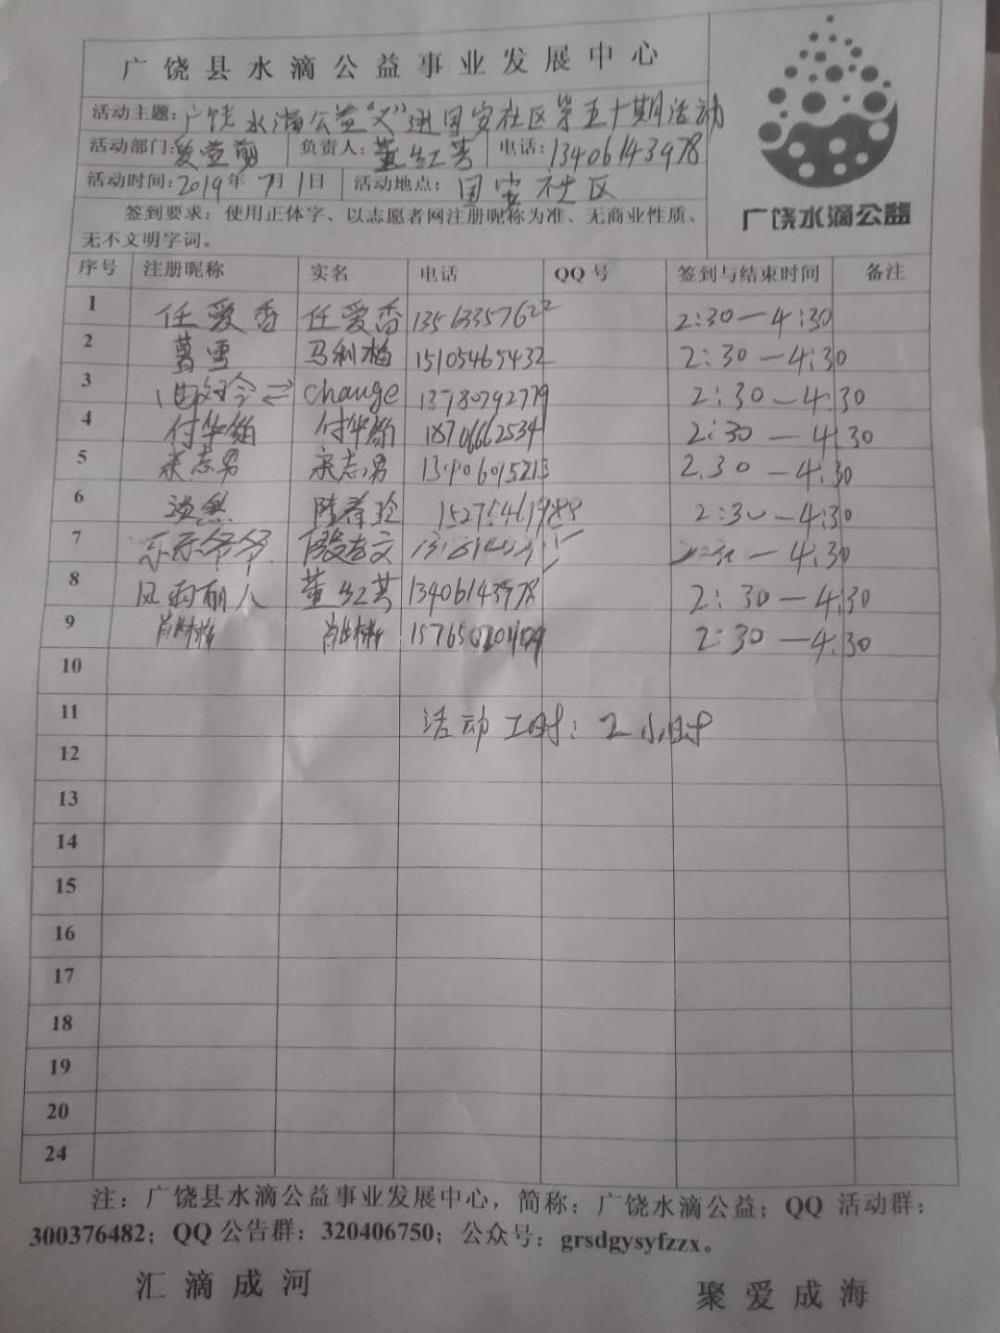 广饶县水滴公益事业发展中心
活动主题：广饶水滴公益"义"进国安社区第五十期活动
活动部门：爱壹剪 负责人：董红芳 电话：13406143978
活动时间：2019年7月1日 活动地点：国安社区
签到要求：使用正体字、以志愿者网注册昵称为准、无商业性质、
无不文明字词。
广饶水滴公益
序号 注册昵称 实名 电话 QQ号 签到与结束时间 备注
1 任爱香 任爱香 13563357622 2:30—4:30
2 暮雪 马利梅 15105465432 2:30—4:30
3 change 13780792779 2:30—4:30
4 付华舶 付华舶 18706662534 2:30—4:30
5 宋志男 宋志男 2.30—4:30
6 淡然 2:30—4:30
7 乐乐爷爷 —4:30
8 风雨丽人 董红芳 13406143978 2:30—4:30
9 2:30—4:30
10
11 活动工时：2小时
12
13
14
15
16
17
18
19
20
24
注：广饶县水滴公益事业发展中心，简称：广饶水滴公益；QQ 活动群：
300376482；QQ公告群：320406750；公众号：grsdgysyfzzx。
汇滴成河 聚爱成海